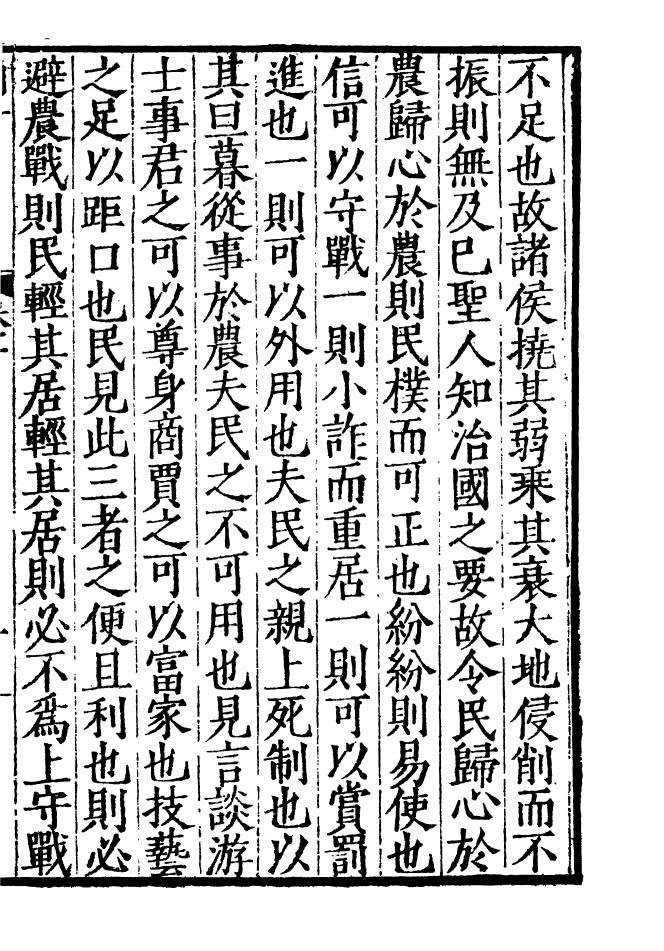 不足也故諸侯撓其弱乘其衰大地侵削而不
振則無及已聖人知治國之要故令民歸心於
農歸心於農則民樸而可正也紛紛則易使也
信可以守戰一則小詐而重居一則可以賞罰
進也一則可以外用也夫民之親上死制也以
其旦暮從事於農夫民之不可用也見言談游
士事君之可以尊身商賈之可以富家也技藝
之足以距口也民見此三者之便且利也則必
避農戰則民輕其居輕其居則必不爲上守戰